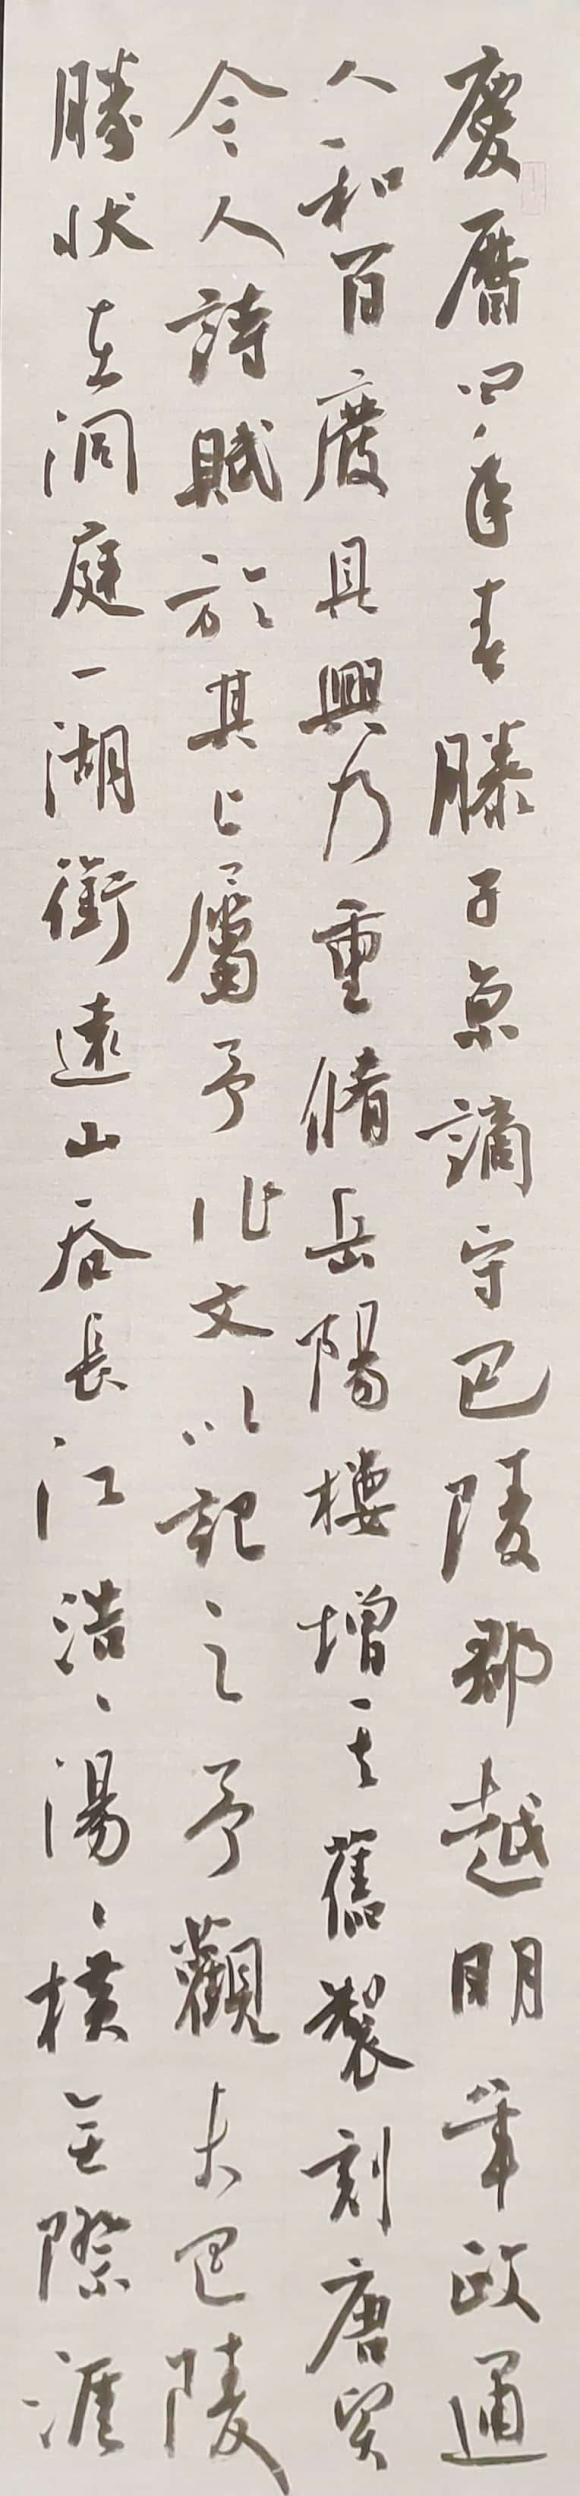 慶曆四年春滕子京謫守巴陵郡越明年政通
人和百廢具興乃重脩岳陽樓增其舊製刻唐賢
今人詩賦於其上屬予作文以記之予觀夫巴陵
勝狀在洞庭一湖銜遠山吞長江浩〻湯〻橫無際涯